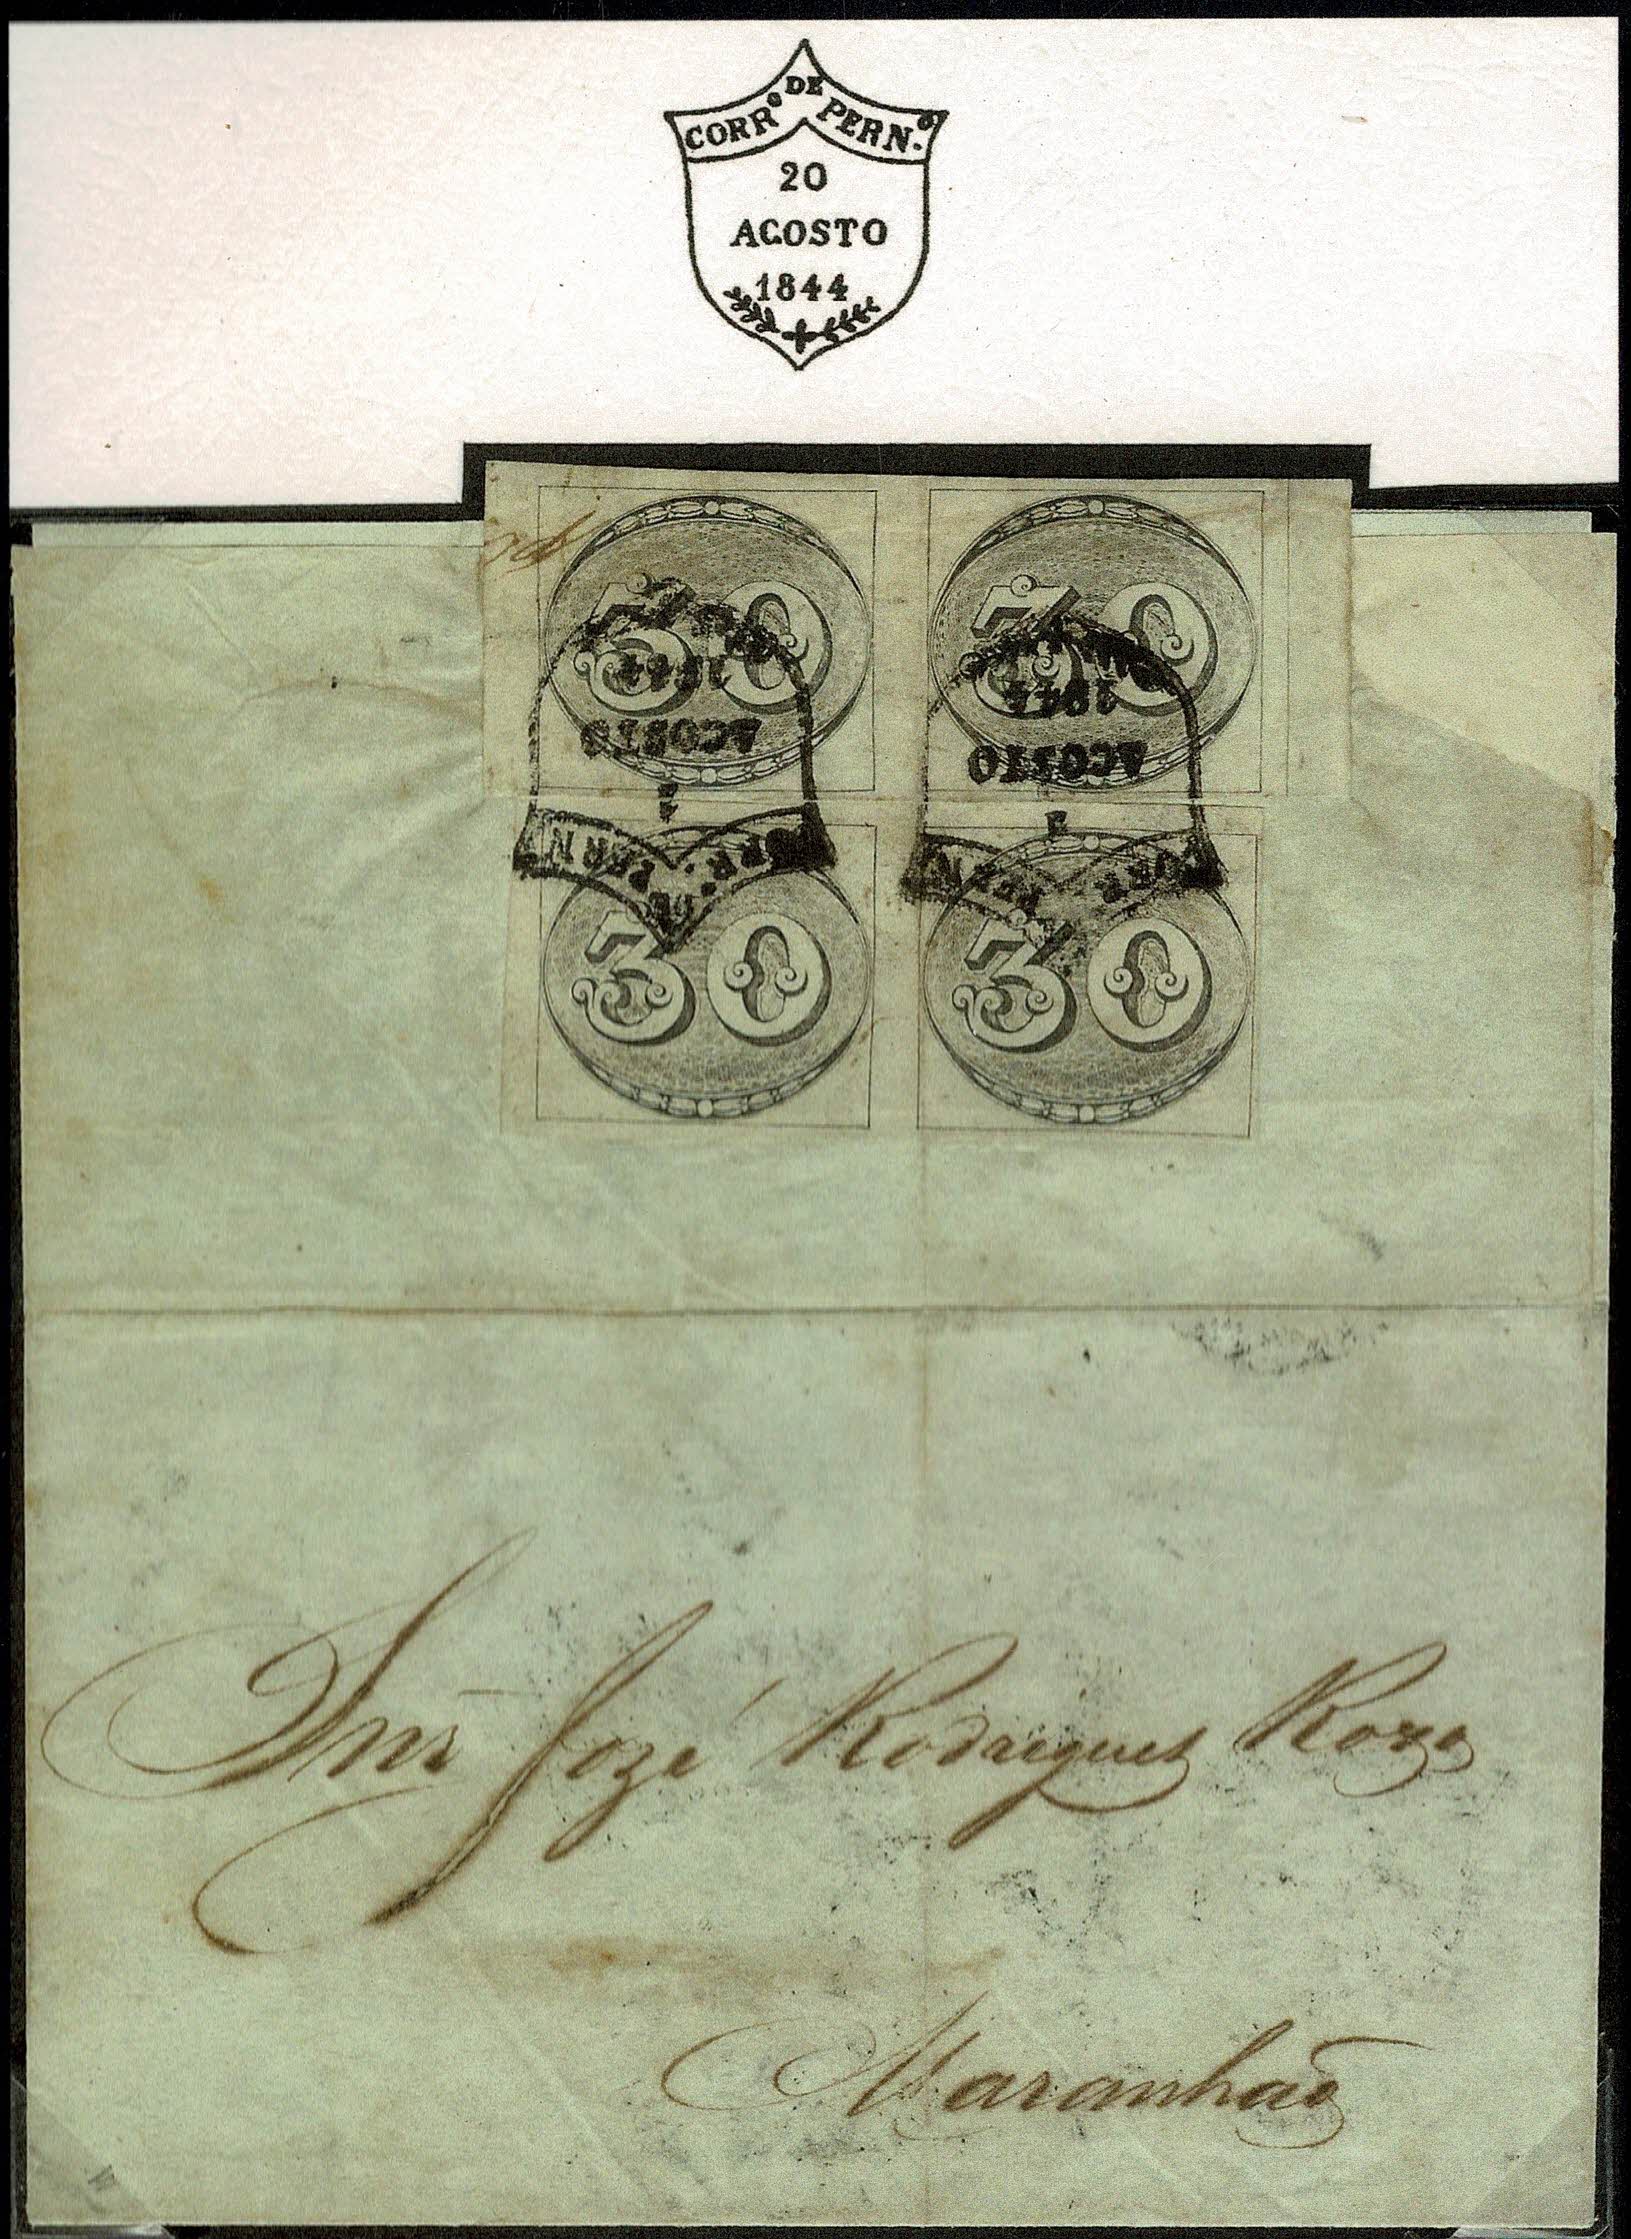 CORRº DE PERNº
20
AGOSTO
1844
30 30
1844 1844
AGOSTO AGOSTO
CORRº DE PERN CORRº PERN
30 30
Snr José Rodrigues Roza
Maranhaõ